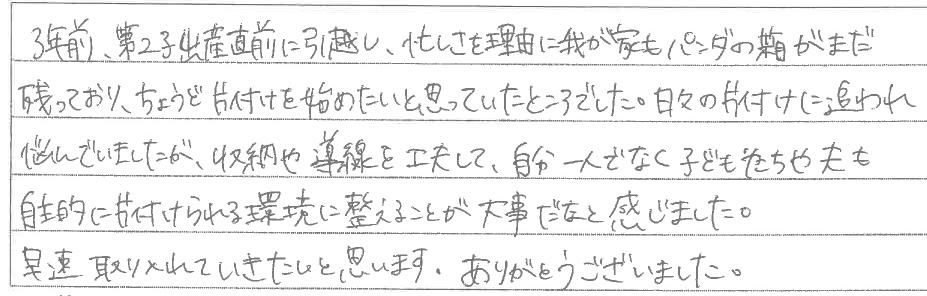 3年前、第2子出産直前に引越し、忙しさを理由に我が家もパンダの箱がまだ
残っており、ちょうど片付けを始めたいと思っていたところでした。日々の片付けに追われ
悩んでいましたが、収納や導線を工夫して、自分一人でなく子ども達ちや夫も
自主的に片付けられる環境に整えることが大事だなと感じました。
早速取り入れていきたいと思います。ありがとうございました。